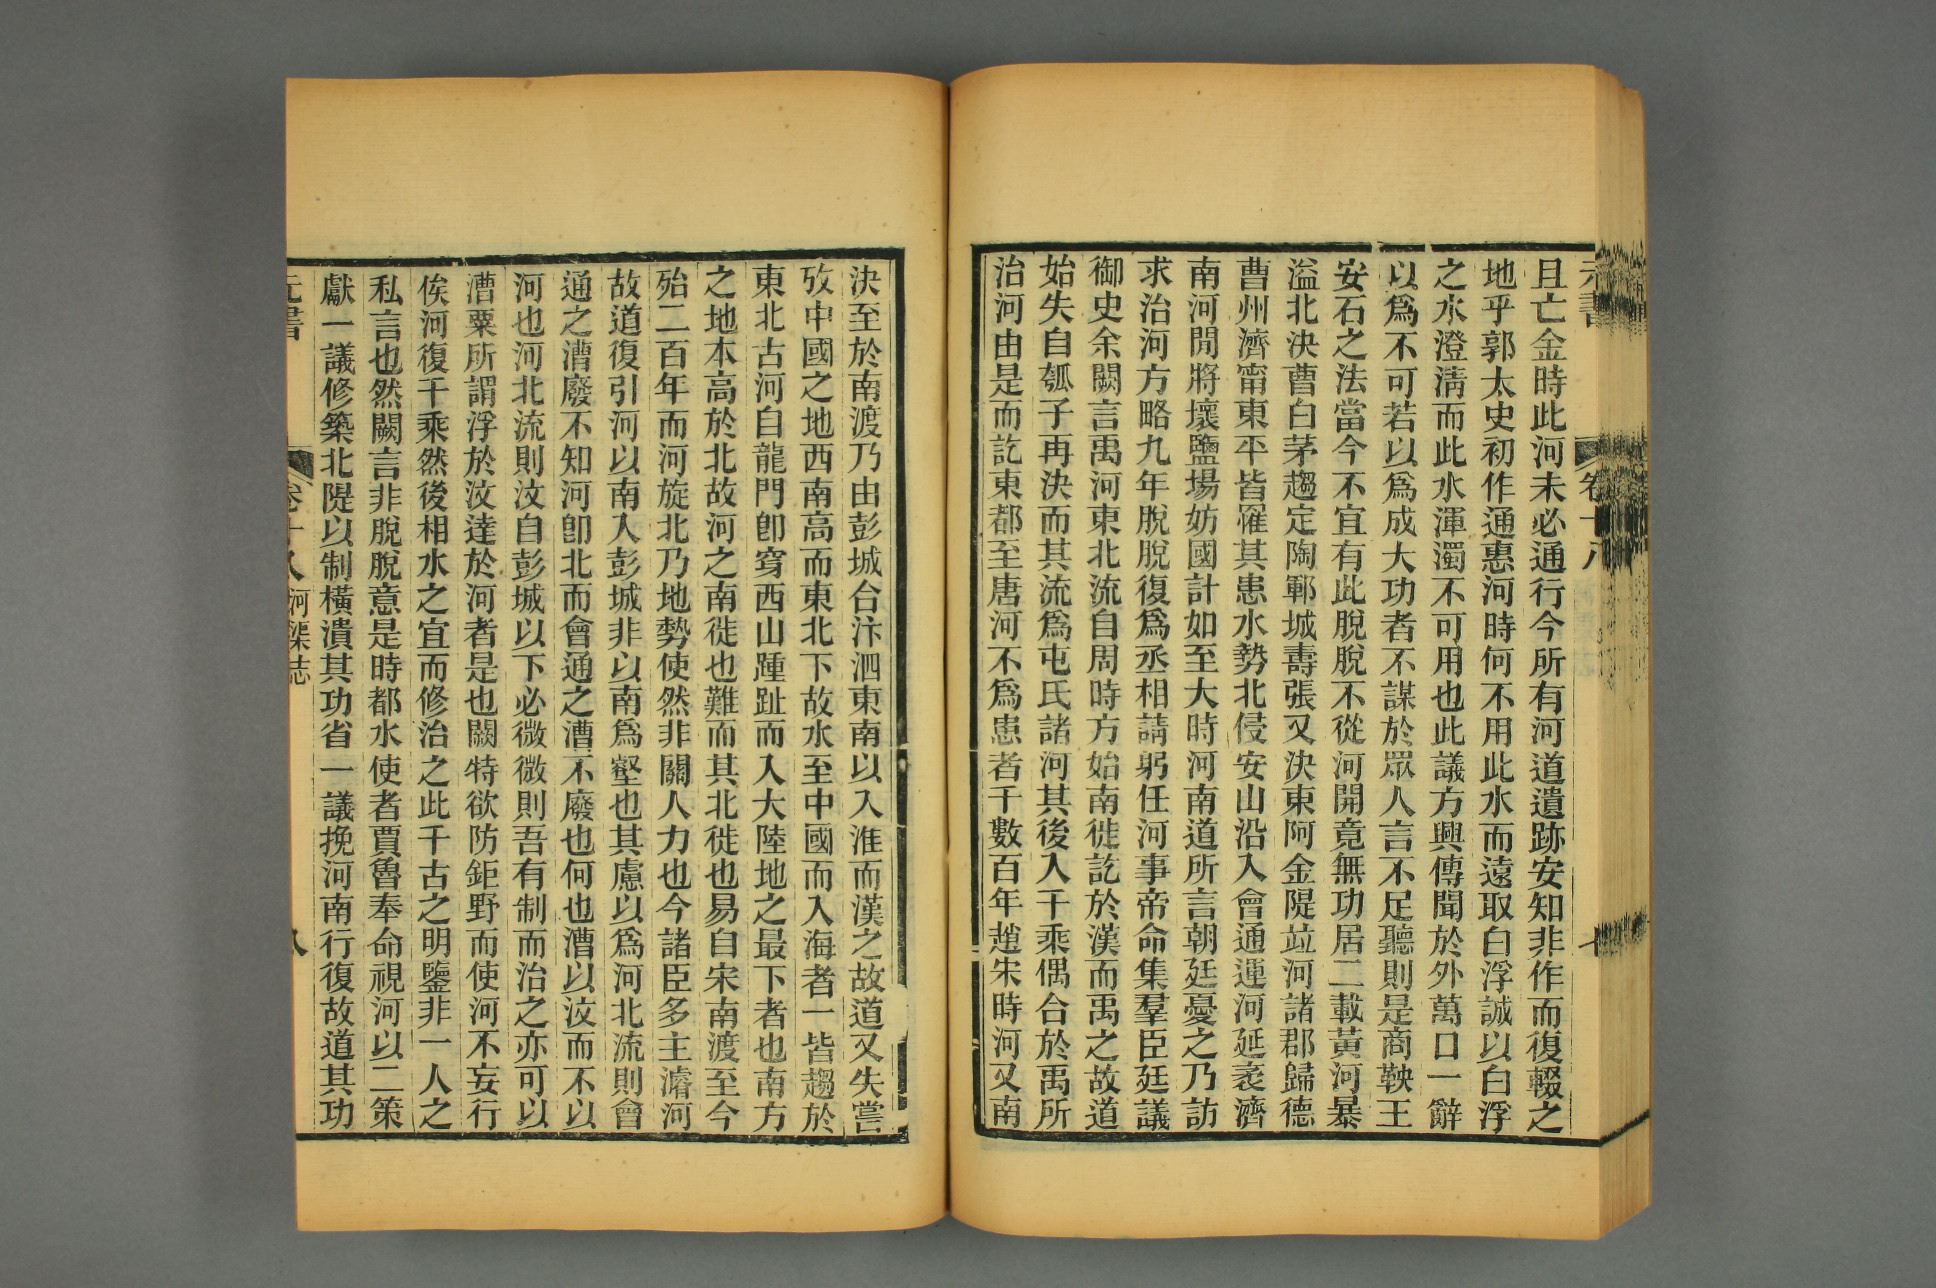 元書
卷十八
七
且亡金時此河未必通行今所有河道遺跡安知非作而復輟之
地乎郭太史初作通惠河時何不用此水而遠取白浮誠以白浮
之水澄淸而此水渾濁不可用也此議方興傳聞於外萬口一辭
以爲不可若以爲成大功者不謀於眾人言不足聽則是商鞅王
安石之法當今不宜有此脫脫不從河開竟無功居二載黃河暴
溢北決曹白茅趨定陶鄆城壽張又決東阿金隄竝河諸郡歸德
曹州濟甯東平皆罹其患水勢北侵安山沿入會通運河延袤濟
南河閒將壞鹽場妨國計如至大時河南道所言朝廷憂之乃訪
求治河方略九年脫脫復爲丞相請躬任河事帝命集羣臣廷議
御史余闕言禹河東北流自周時方始南徙訖於漢而禹之故道
始失自瓠子再決而其流爲屯氏諸河其後入千乘偶合於禹所
治河由是而訖東都至唐河不爲患者千數百年趙宋時河又南
決至於南渡乃由彭城合汴泗東南以入淮而漢之故道又失嘗
攷中國之地西南高而東北下故水至中國而入海者一皆趨於
東北古河自龍門卽穹西山踵趾而入大陸地之最下者也南方
之地本高於北故河之南徙也難而其北徙也易自宋南渡至今
殆二百年而河旋北乃地勢使然非關人力也今諸臣多主濬河
故道復引河以南入彭城非以南爲壑也其慮以爲河北流則會
通之漕廢不知河卽北而會通之漕不廢也何也漕以汶而不以
河也河北流則汶自彭城以下必微微則吾有制而治之亦可以
漕粟所謂浮於汶達於河者是也闕特欲防鉅野而使河不妄行
俟河復千乘然後相水之宜而修治之此千古之明鹽非一人之
私言也然闕言非脫脫意是時都水使者賈魯奉命視河以二策
獻一議修築北隄以制橫潰其功省一議挽河南行復故道其功
元書
卷十八
河渠志
八